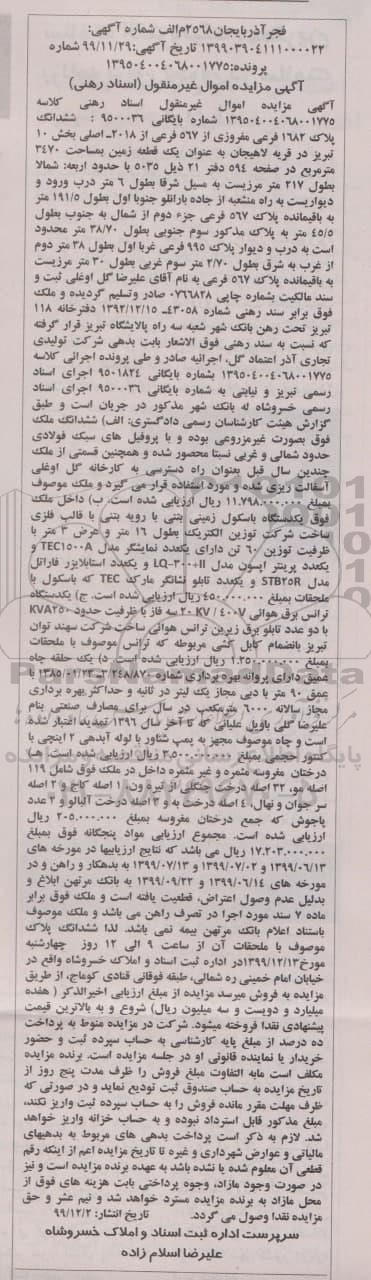 فجر آذربایجان ۲۵۶۸م الف شماره آگهی:
۱۳۹۹۰۳۹۰۴۱۱۱۰۰۰۰۲۳ تاریخ آگهی: ۹۹/۱۱/۲۹ شماره
پرونده: ۱۳۹۵۰۴۰۰۴۰۶۸۰۰۱۷۷۵
آگهی مزایده اموال غیرمنقول (اسناد رهنی)
آگهی مزایده اموال غیرمنقول اسناد رهنی کلاسه
۱۳۹۵۰۴۰۰۴۰۶۸۰۰۱۷۷۵ شماره بایگانی ۹۵۰۰۰۳۶ : ششدانگ
پلاک ۱۶۸۲ فرعی مفروزی از ۵۶۷ فرعی از ۲۰۱۸ـ اصلی بخش ۱۰
تبریز در قریه لاهیجان به عنوان یک قطعه زمین بمساحت ۳۴۷۰
مترمربع در صفحه ۵۹۴ دفتر ۲۱ ذیل ۵۰۳۵ با حدود اربعه: شمالا
بطول ۲۱۷ متر مرزیست به مسیل شرقا بطول ۶ متر درب ورود و
دیواریست به راه منشعبه از جاده بارانلو جنوبا اول بطول ۱۹۱/۵ متر
به باقیمانده پلاک ۵۶۷ فرعی جزء دوم از شمال به جنوب بطول
۴۵/۵ متر به پلاک مذکور سوم جنوبی بطول ۳۸/۷۰ متر محدود
است به درب و دیوار پلاک ۹۹۵ فرعی غربا اول بطول ۳۸ متر دوم
از غرب به شرق بطول ۲/۷۰ متر سوم غربی بطول ۳۰ متر مرزیست
به باقیمانده پلاک ۵۶۷ فرعی به نام آقای علیرضا گل اوغلی ثبت و
سند مالکیت بشماره چاپی ۰۷۶۶۸۲۸ صادر وتسلیم گردیده و ملک
فوق برابر سند رهنی شماره ۴۳۰۵۸ـ ۱۳۹۲/۱۲/۱۵ دفترخانه ۱۱۸
تبریز تحت رهن بانک شهر شعبه سه راه پالایشگاه تبریز قرار گرفته
که نسبت به سند رهنی فوق الاشعار بابت بدهی شرکت تولیدی
تجاری آذر اعتماد گل، اجرائیه صادر و طی پرونده اجرائی کلاسه
۱۳۹۵۰۴۰۰۴۰۶۸۰۰۱۷۷۵ بشماره بایگانی ۹۵۰۱۸۲۴ اجرای اسناد
رسمی تبریز و نیابتی به شماره بایگانی ۹۵۰۰۰۳۶ اجرای اسناد
رسمی خسروشاه له بانک شهر مذکور در جریان است و طبق
گزارش هیئت کارشناسان رسمی دادگستری: الف) ششدانگ ملک
فوق بصورت غیرمزروعی بوده و با پروفیل های سبک فولادی
حدود شمالی و غربی نسبتا محصور شده و همچنین قسمتی از ملک
چندین سال قبل بعنوان راه دسترسی به کارخانه گل اوغلی
آسفالت ریزی شده و مورد استفاده قرار می گیرد و ملک موصوف
بمبلغ ۱۱.۷۹۸.۰۰۰.۰۰۰ ریال ارزیابی شده است. ب) داخل ملک
فوق یکدستگاه باسکول زمینی بتنی با رویه بتنی با قالب فلزی
ساخت شرکت توزین الکتریک بطول ۱۶ متر و عرض ۳ متر با
ظرفیت توزین ۶۰ تن دارای یکعدد نمایشگر مدل TEC۱۵۰۰A و
یکعدد پرینتر اپسون مدل LQ-۳۰۰+II و یکعدد استابلایزر فاراتل
مدل STB۲۵R و یکعدد تابلو نشانگر مارک TEC که باسکول با
ملحقات بمبلغ ۴۵۰.۰۰۰.۰۰۰ ریال ارزیابی شده است. ج) یکدستگاه
ترانس برق هوائی ۲۰ KV / ۴۰۰V سه فاز با ظرفیت حدود KVA۲۵۰
با دو عدد تابلو برق زیرین ترانس هوائی ساخت شرکت سهند توان
تبریز بانضمام کابل کشی مربوطه که ترانس موصوف با ملحقات
بمبلغ ۱.۲۵۰.۰۰۰.۰۰۰ ریال ارزیابی شده است. د) یک حلقه چاه
عمیق دارای پروانه بهره برداری شماره ۳۲۴۸/۸۷۰ـ ۱۳۸۵/۰۱/۲۳ با
عمق ۹۰ متر با دبی مجاز یک لیتر در ثانیه و حداکثر بهره برداری
مجاز سالانه ۶۰۰۰ مترمکعب در سال برای مصارف صنعتی بنام
علیرضا گلی باویل علیائی که تا آخر سال ۱۳۹۶ تمدید اعتبار شده
است و چاه موصوف مجهز به پمپ شناور با لوله آبدهی ۲ اینچی با
کنتور حجمی بمبلغ ۳.۵۰۰.۰۰۰.۰۰۰ ریال ارزیابی شده است. هـ)
درختان مغروسه مثمره و غیر مثمره داخل در ملک فوق شامل ۱۱۹
اصله مو، ۳۲ اصله درخت جنگلی از تیره ون، ۱ اصله کاج و ۲ اصله
سر جوان و نهال، ۴ اصله درخت به و ۳ اصله درخت آلبالو و ۲ عدد
پاجوش که جمع درختان مغروسه بمبلغ ۲۰۵.۰۰۰.۰۰۰ ریال
ارزیابی شده است. مجموع ارزیابی مواد پنجگانه فوق بمبلغ
۱۷.۲۰۳.۰۰۰.۰۰۰ ریال می باشد که نتایج ارزیابیها در مورخه های
۱۳۹۹/۰۶/۱۳ و ۱۳۹۹/۰۷/۰۲ و ۱۳۹۹/۰۷/۱۳ به بدهکار و راهن و در
مورخه های ۱۳۹۹/۰۶/۱۴ و ۱۳۹۹/۰۹/۲۲ به بانک مرتهن ابلاغ و
بدلیل عدم وصول اعتراض، قطعیت یافته است و ملک فوق برابر
ماده ۷ سند مورد اجرا در تصرف راهن می باشد و ملک موصوف
باستناد اعلام بانک مرتهن بیمه نمی باشد. لذا ششدانگ پلاک
موصوف با ملحقات آن از ساعت ۹ الی ۱۲ روز چهارشنبه
مورخ ۱۳۹۹/۱۲/۱۳ در اداره ثبت اسناد و املاک خسروشاه واقع در
خیابان امام خمینی ره شمالی، طبقه فوقانی قنادی کوماج، از طریق
مزایده به فروش میرسد مزایده از مبلغ ارزیابی اخیرالذکر ( هفده
میلیارد و دویست و سه میلیون ریال) شروع و به بالاترین قیمت
پیشنهادی نقدا فروخته میشود. شرکت در مزایده منوط به پرداخت
ده درصد از مبلغ پایه کارشناسی به حساب سپرده ثبت و حضور
خریدار یا نماینده قانونی او در جلسه مزایده است. برنده مزایده
مکلف است مابه التفاوت مبلغ فروش را ظرف مدت پنج روز از
تاریخ مزایده به حساب صندوق ثبت تودیع نماید و در صورتی که
ظرف مهلت مقرر مانده فروش را به حساب سپرده ثبت واریز نکند،
مبلغ مذکور قابل استرداد نبوده و به حساب خزانه واریز خواهد
شد. لازم به ذکر است پرداخت بدهی های مربوط به بدهیهای
مالیاتی و عوارض شهرداری و غیره تا تاریخ مزایده اعم از اینکه رقم
قطعی آن معلوم شده یا نشده باشد به عهده برنده مزایده است و نیز
در صورت وجود مازاد، وجوه پرداختی بابت هزینه های فوق از
محل مازاد به برنده مزایده مسترد خواهد شد و نیم عشر و حق
مزایده نقدا وصول می گردد. تاریخ انتشار: ۹۹/۱۲/۲
سرپرست اداره ثبت اسناد و املاک خسروشاه
علیرضا اسلام زاده